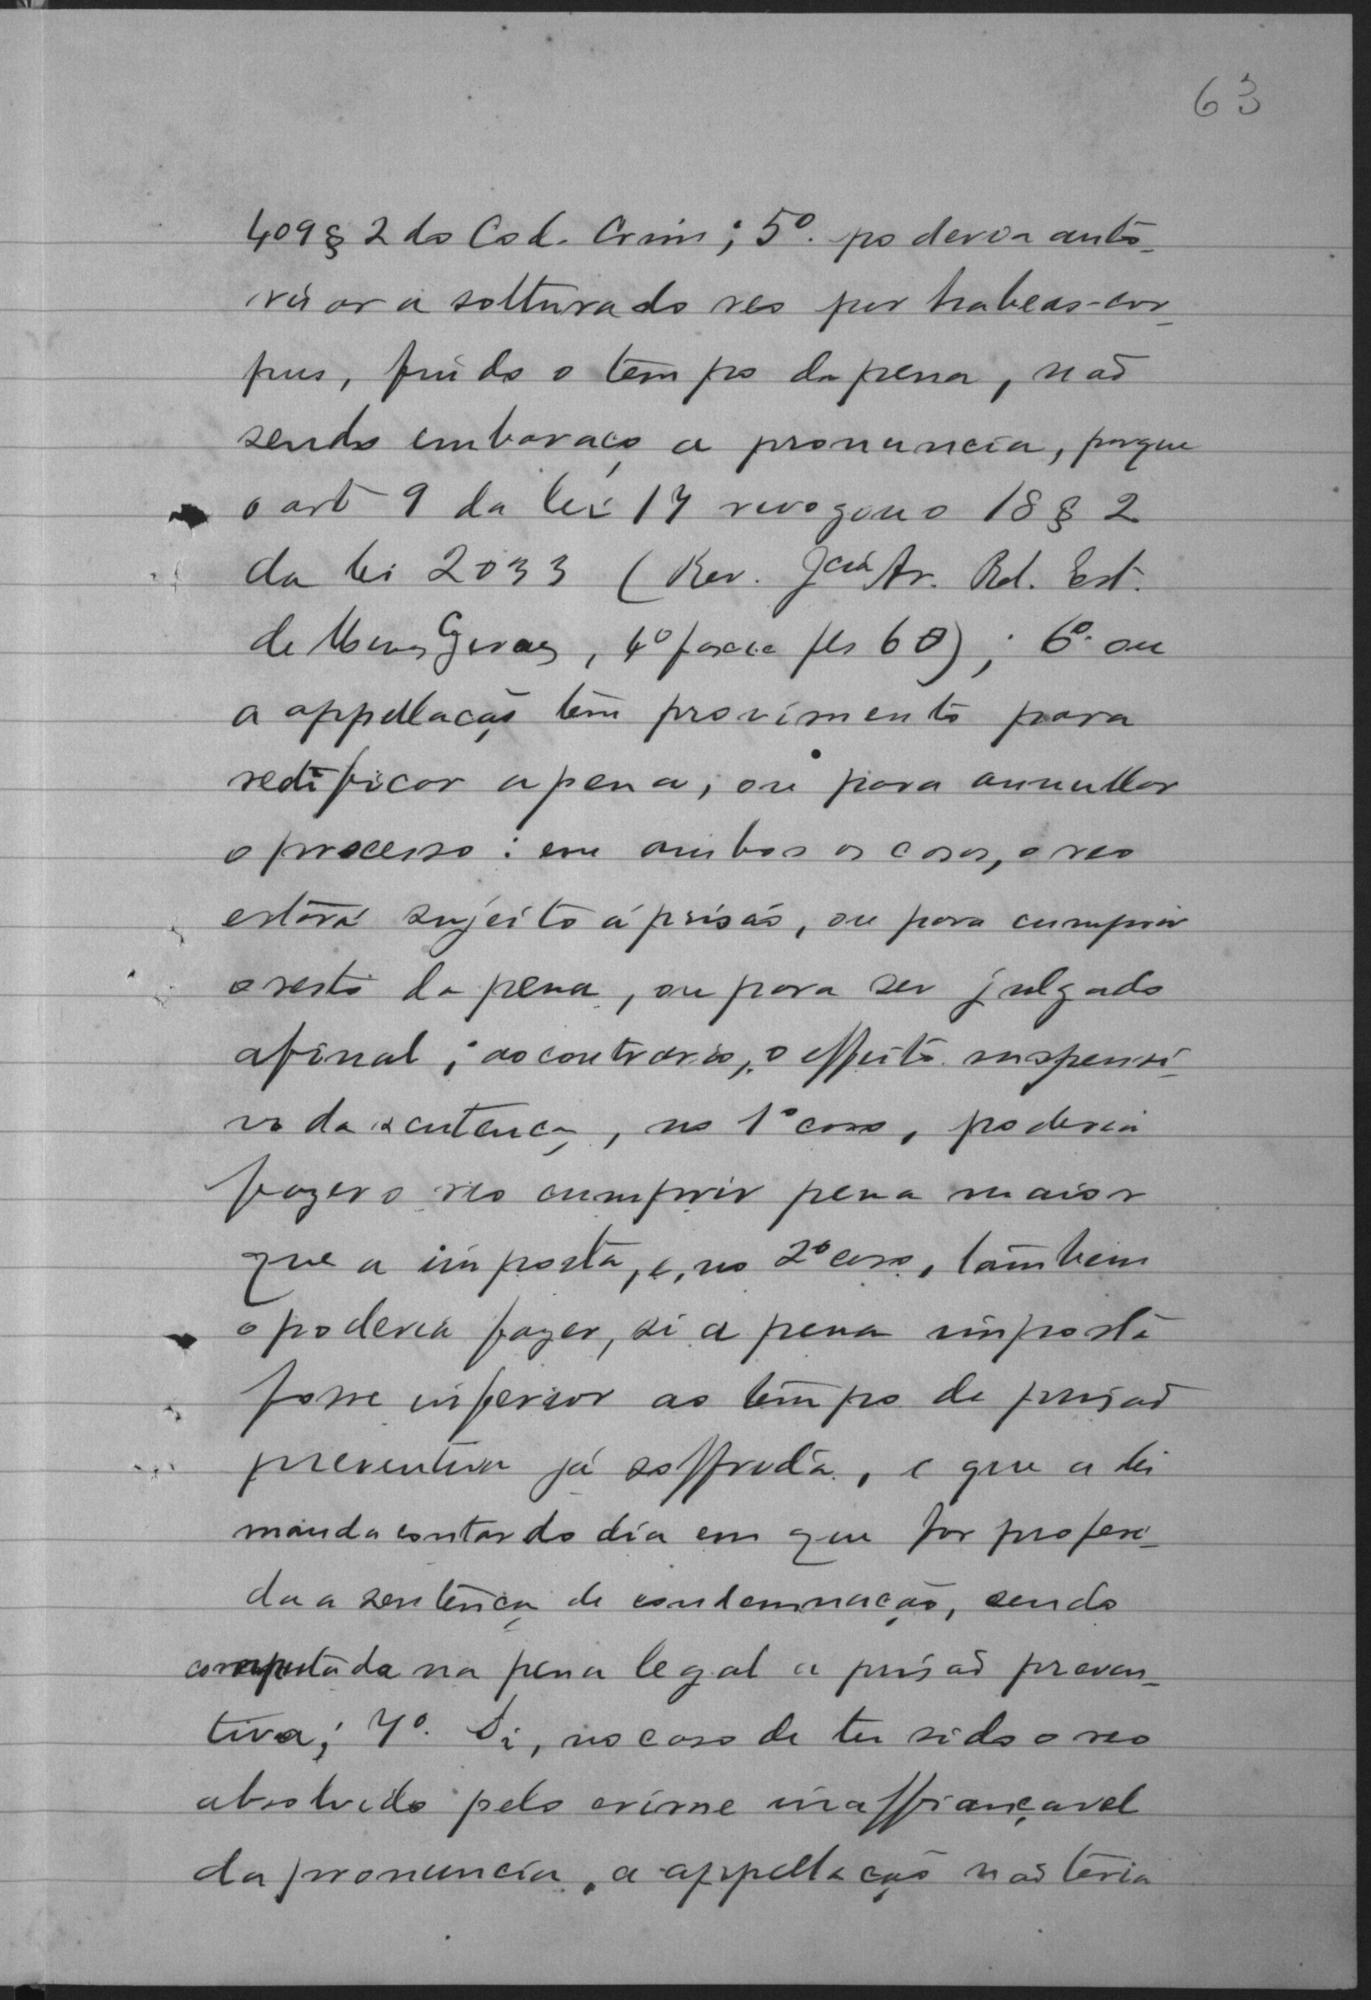 63
409 § 2 do Cod. Crim; 5º. poderia auto-
risar a soltura do reo por habeas-cor-
pus, findo o tempo da pena, não
sendo embaraço a pronuncia, porque
o art 9 da lei 17 revogou o 18 § 2
da lei 2033 (Rev. Jcia Ar. Rel. Est.
de Minas Geraes, 4º fascic fls 68); 6º. ou
a appellação tem provimento para
rectificar a pena, ou para annullar
o processo: em ambos os casos, o reo
estará sujeito á prisão, ou para cumprir
o resto da pena, ou para ser julgado
afinal; ao contrario, o effeito suspensi-
vo da sentença, no 1º caso, poderia
fazer o reo cumprir pena maior
que a imposta, e, no 2º caso, tambem
o poderia fazer, si a pena imposta
fosse inferior ao tempo de prisão
preventiva já soffrida, e que a lei
manda contar do dia em que for proferi-
da a sentença de condemnação, sendo
computada na pena legal a prisão preven-
tiva; 7º. Si, no caso de ter sido o reo
absolvido pelo crime inaffiançavel
da pronuncia, a appellação não teria